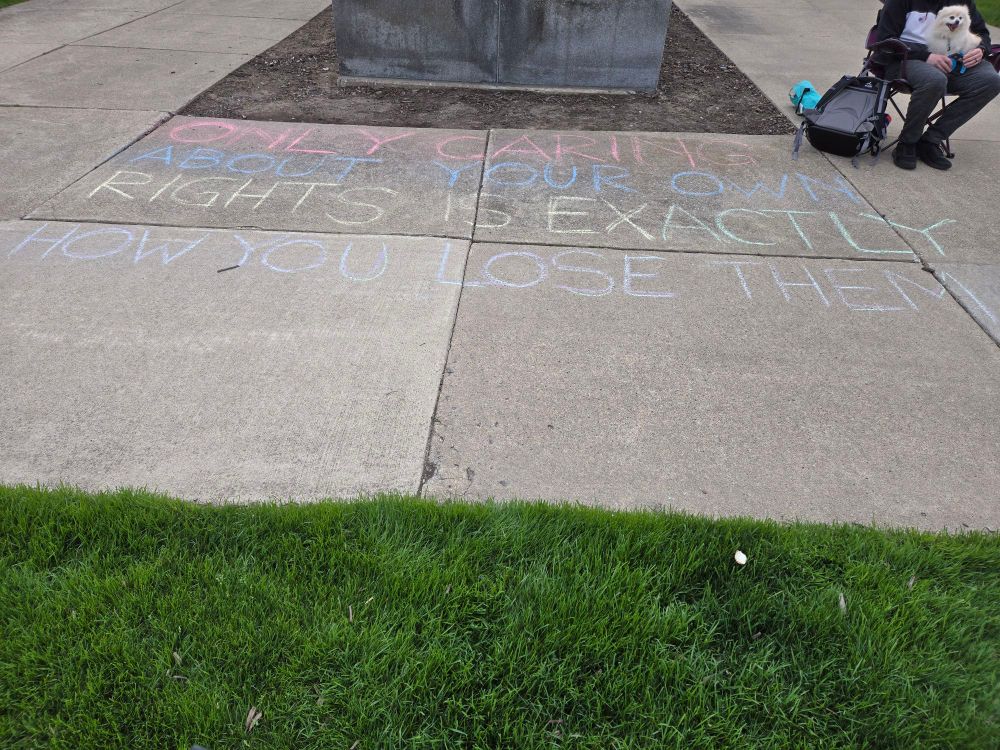 ONLY CARING
ABOUT YOUR OWN
RIGHTS IS EXACTLY
HOW YOU LOSE THEM